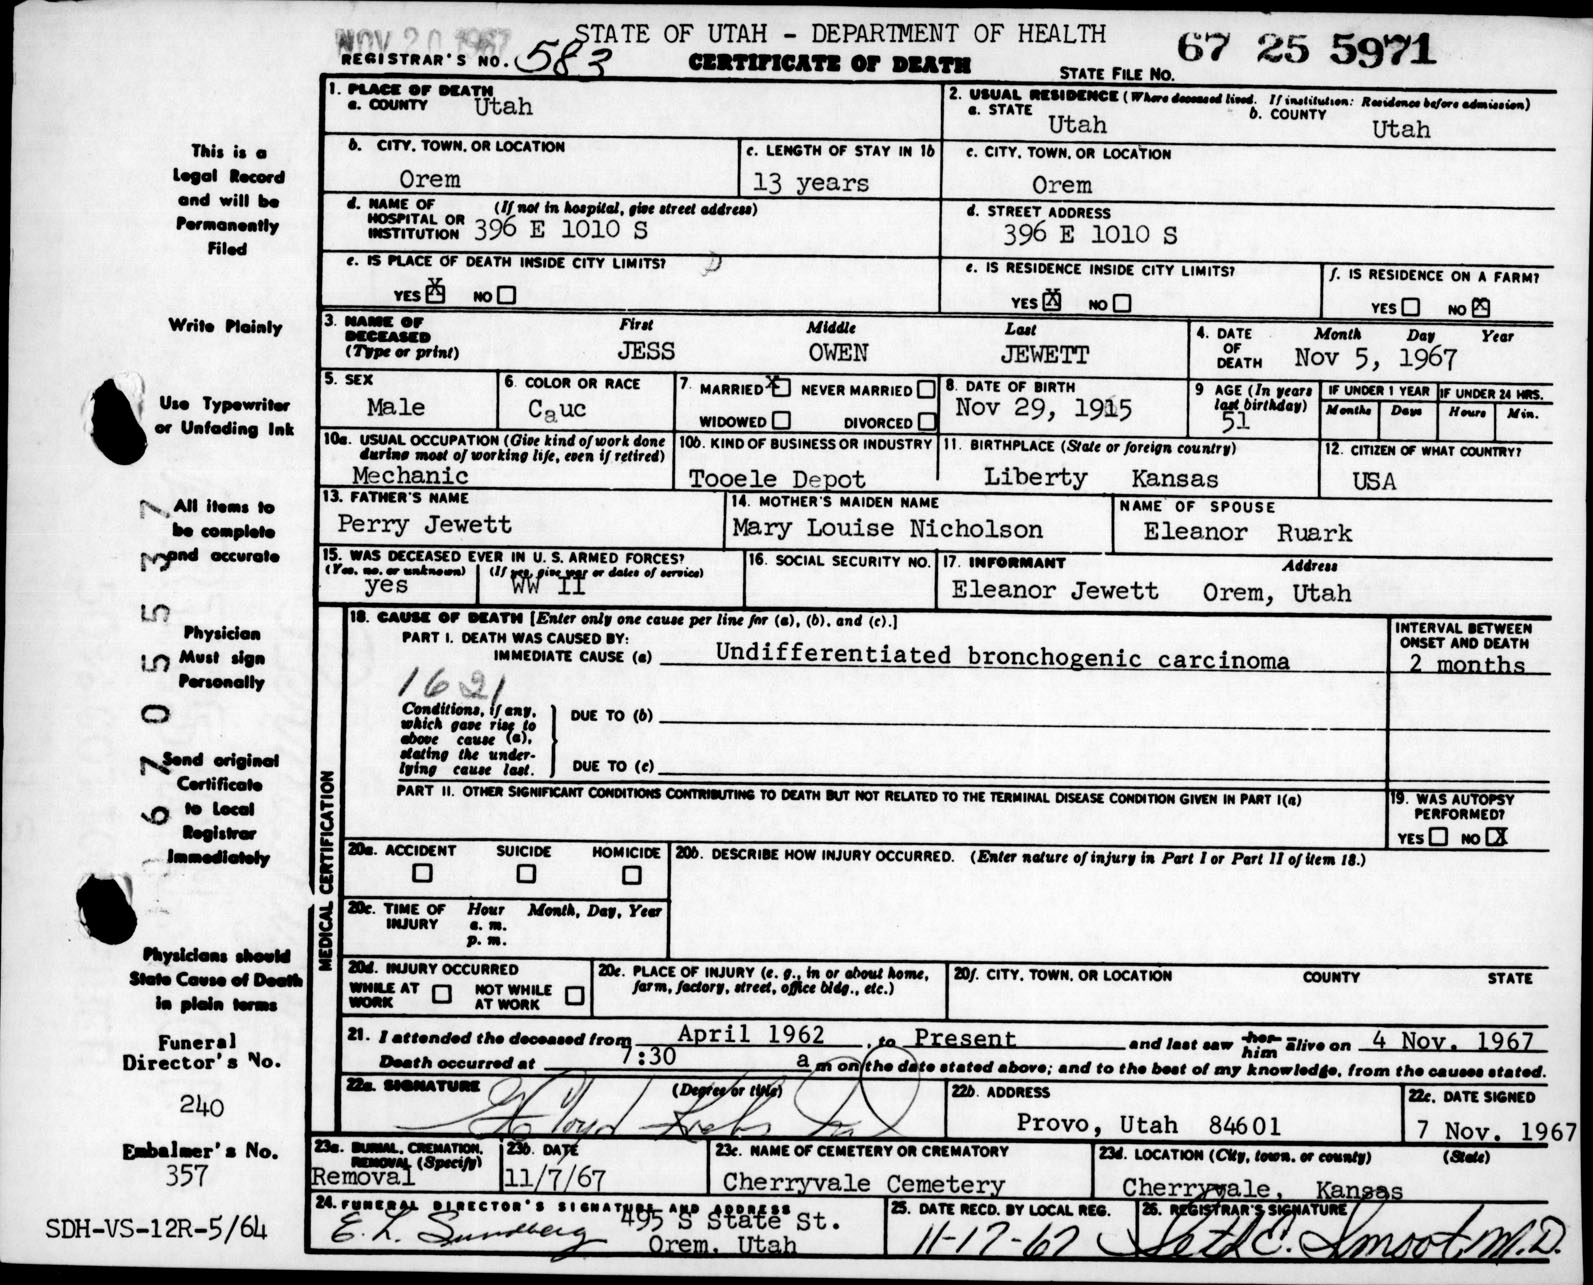 NOV 20 1967
STATE OF UTAH - DEPARTMENT OF HEALTH
REGISTRAR'S NO. 583
CERTIFICATE OF DEATH
STATE FILE NO. 67 25 5971
This is a
Legal Record
and will be
Permanently
Filed
Write Plainly
Use Typewriter
or Unfading Ink
All items to
be complete
and accurate
Physician
Must sign
Personally
Send original
Certificate
to Local
Registrar
Immediately
Physicians should
State Cause of Death
in plain terms
Funeral
Director's No.
240
Embalmer's No.
357
SDH-VS-12R-5/64
67 0 55537
1. PLACE OF DEATH
a. COUNTY Utah
2. USUAL RESIDENCE (Where deceased lived. If institution: Residence before admission)
a. STATE Utah b. COUNTY Utah
b. CITY, TOWN, OR LOCATION
Orem
c. LENGTH OF STAY IN 1b
13 years
c. CITY, TOWN, OR LOCATION
Orem
d. NAME OF HOSPITAL OR INSTITUTION (If not in hospital, give street address)
396 E 1010 S
d. STREET ADDRESS
396 E 1010 S
e. IS PLACE OF DEATH INSIDE CITY LIMITS?
YES X NO
e. IS RESIDENCE INSIDE CITY LIMITS?
YES X NO
f. IS RESIDENCE ON A FARM?
YES NO X
3. NAME OF DECEASED (Type or print)
First Middle Last
JESS OWEN JEWETT
4. DATE OF DEATH Month Day Year
Nov 5, 1967
5. SEX
Male
6. COLOR OR RACE
Cauc
7. MARRIED X NEVER MARRIED
WIDOWED DIVORCED
8. DATE OF BIRTH
Nov 29, 1915
9 AGE (In years last birthday)
51
IF UNDER 1 YEAR IF UNDER 24 HRS.
Months Days Hours Min.
10a. USUAL OCCUPATION (Give kind of work done during most of working life, even if retired)
Mechanic
10b. KIND OF BUSINESS OR INDUSTRY
Tooele Depot
11. BIRTHPLACE (State or foreign country)
Liberty Kansas
12. CITIZEN OF WHAT COUNTRY?
USA
13. FATHER'S NAME
Perry Jewett
14. MOTHER'S MAIDEN NAME
Mary Louise Nicholson
NAME OF SPOUSE
Eleanor Ruark
15. WAS DECEASED EVER IN U. S. ARMED FORCES?
(Yes, no, or unknown) (If yes, give war or dates of service)
yes WW II
16. SOCIAL SECURITY NO.
17. INFORMANT Address
Eleanor Jewett Orem, Utah
MEDICAL CERTIFICATION
18. CAUSE OF DEATH [Enter only one cause per line for (a), (b), and (c).]
PART I. DEATH WAS CAUSED BY:
IMMEDIATE CAUSE (a) Undifferentiated bronchogenic carcinoma
INTERVAL BETWEEN ONSET AND DEATH
2 months
1621
Conditions, if any, which gave rise to above cause (a), stating the underlying cause last.
DUE TO (b)
DUE TO (c)
PART II. OTHER SIGNIFICANT CONDITIONS CONTRIBUTING TO DEATH BUT NOT RELATED TO THE TERMINAL DISEASE CONDITION GIVEN IN PART I(a)
19. WAS AUTOPSY PERFORMED?
YES NO X
20a. ACCIDENT SUICIDE HOMICIDE
20b. DESCRIBE HOW INJURY OCCURRED. (Enter nature of injury in Part I or Part II of item 18.)
20c. TIME OF INJURY Hour Month, Day, Year
a. m.
p. m.
20d. INJURY OCCURRED
WHILE AT WORK NOT WHILE AT WORK
20e. PLACE OF INJURY (e. g., in or about home, farm, factory, street, office bldg., etc.)
20f. CITY, TOWN, OR LOCATION COUNTY STATE
21. I attended the deceased from April 1962, to Present and last saw her him alive on 4 Nov. 1967
Death occurred at 7:30 a m on the date stated above; and to the best of my knowledge, from the causes stated.
22a. SIGNATURE (Degree or title)
22b. ADDRESS
Provo, Utah 84601
22c. DATE SIGNED
7 Nov. 1967
23a. BURIAL, CREMATION, REMOVAL (Specify)
Removal
23b. DATE
11/7/67
23c. NAME OF CEMETERY OR CREMATORY
Cherryvale Cemetery
23d. LOCATION (City, town, or county) (State)
Cherryvale, Kansas
24. FUNERAL DIRECTOR'S SIGNATURE AND ADDRESS
E. L. Sundberg 495 S State St.
Orem, Utah
25. DATE RECD. BY LOCAL REG.
11-17-67
26. REGISTRAR'S SIGNATURE
Seth C. Smoot, M.D.